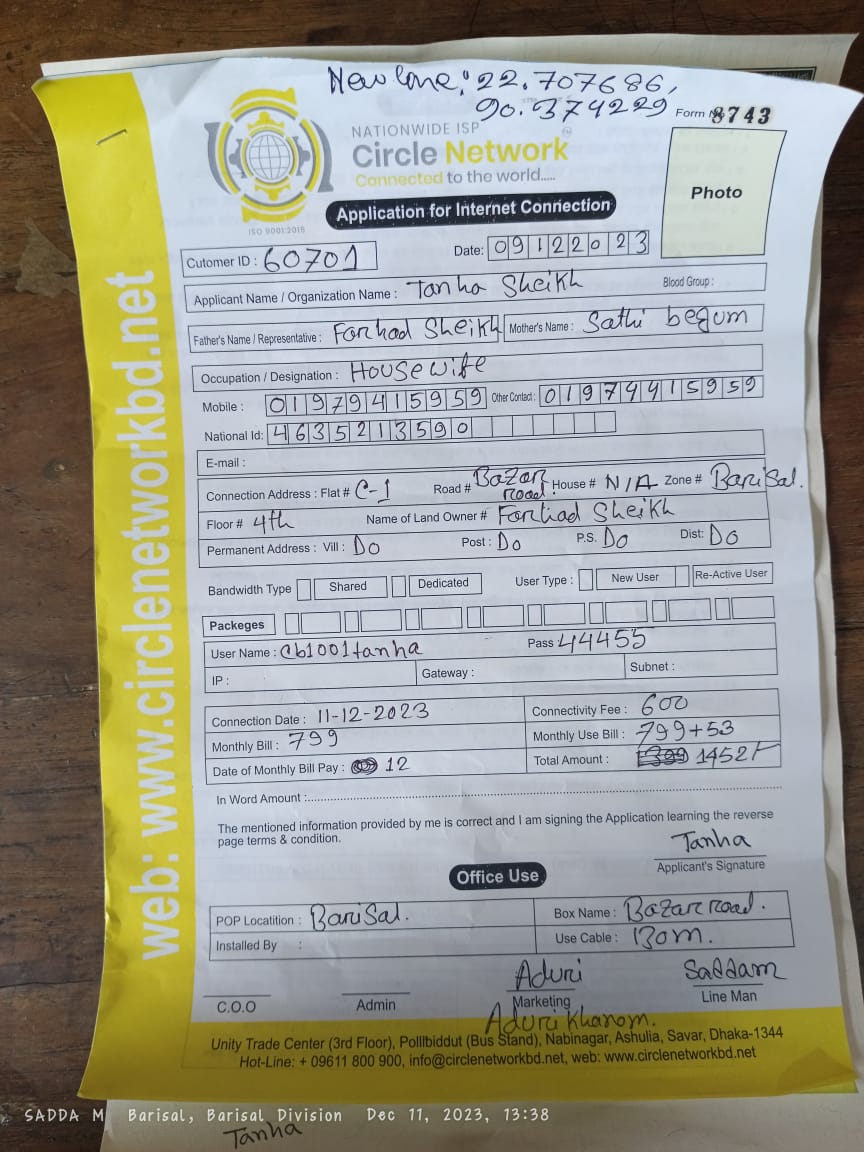 New line: 22.707686,
90.374229
Form No 8743
NATIONWIDE ISP
Circle Network
Connected to the world.....
ISO 9001:2015
Photo
Application for Internet Connection
Cutomer ID : 60701
Date: 09122023
Applicant Name / Organization Name : Tanha Sheikh Blood Group :
Father's Name / Representative : Farhad Sheikh Mother's Name : Sathi begum
Occupation / Designation : Housewife
Mobile : 01979415959 Other Contact : 01974415959
National Id: 4635213590
E-mail :
Connection Address : Flat # C-1 Road # Bazar road. House # N/A Zone # Barisal.
Floor # 4th Name of Land Owner # Farhad Sheikh
Permanent Address : Vill : Do Post : Do P.S. Do Dist: Do
Bandwidth Type Shared Dedicated User Type : New User Re-Active User
Packeges
User Name : cb1001tanha Pass 44455
IP : Gateway : Subnet :
Connection Date : 11-12-2023 Connectivity Fee : 600
Monthly Bill : 799 Monthly Use Bill : 799+53
Date of Monthly Bill Pay : 12 Total Amount : 1399 1452/-
In Word Amount :
The mentioned information provided by me is correct and I am signing the Application learning the reverse
page terms & condition.
Tanha
Applicant's Signature
Office Use
POP Locatition : Barisal. Box Name : Bazar road.
Installed By : Use Cable : 130m.
Aduri Saddam
C.O.O Admin Marketing Line Man
Aduri Khanom.
Unity Trade Center (3rd Floor), Pollibiddut (Bus Stand), Nabinagar, Ashulia, Savar, Dhaka-1344
Hot-Line: + 09611 800 900, info@circlenetworkbd.net, web: www.circlenetworkbd.net
web: www.circlenetworkbd.net
SADDA M Barisal, Barisal Division Dec 11, 2023, 13:38
Tanha